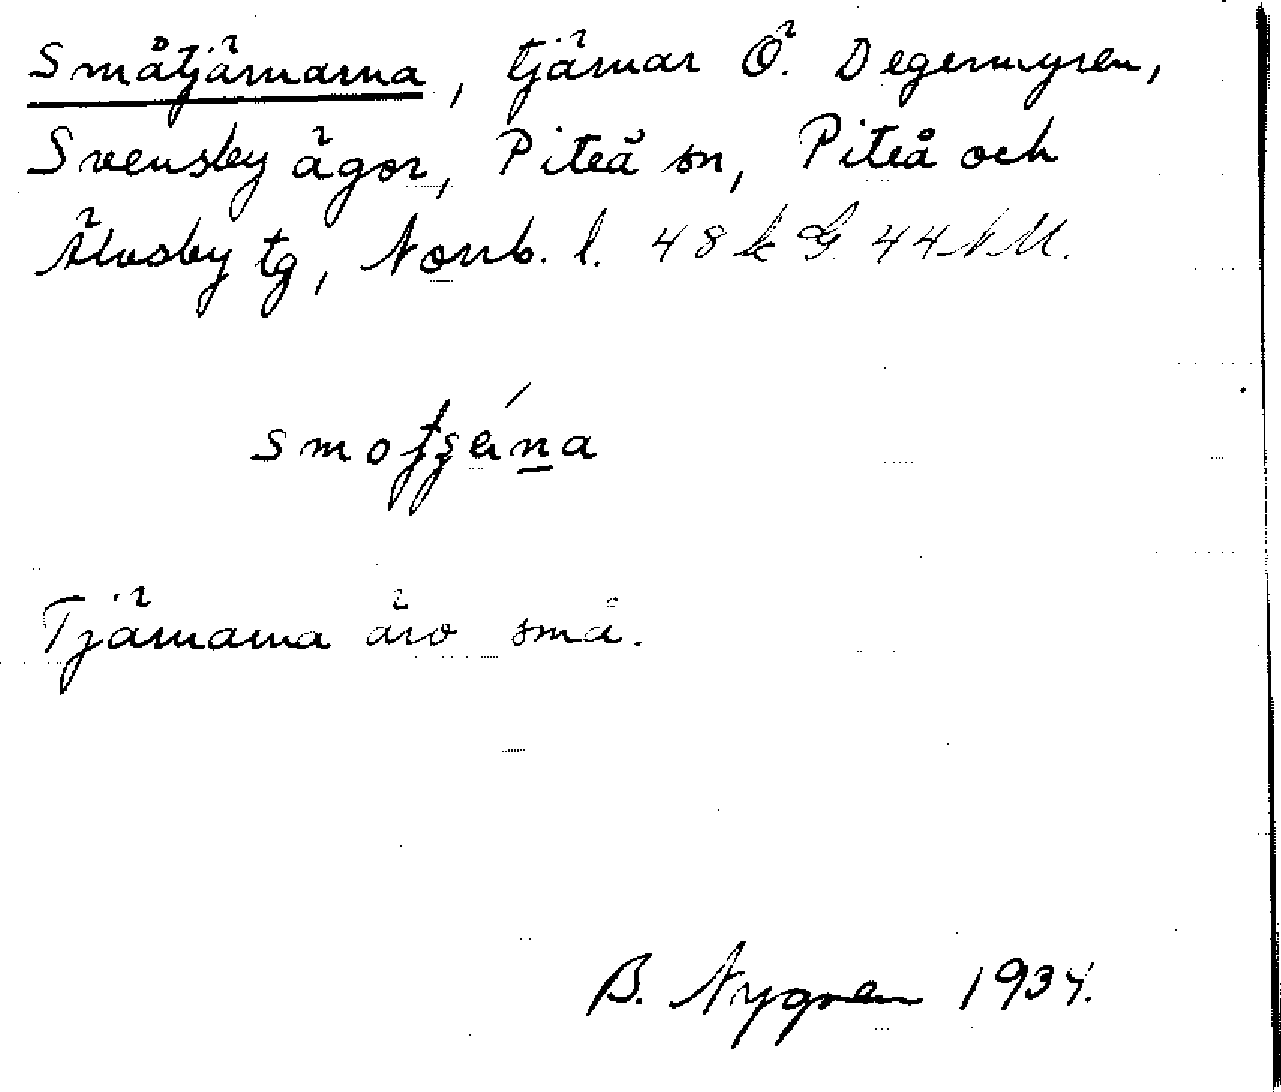 Småtjärnarna, tjärnar Ö. Degermyren,
Svensby ägor, Piteå sn, Piteå och
Älvsby tg, Norrb. l. 48 k G. 44
Tjärnarna äro små.
B. Nygren 1934.